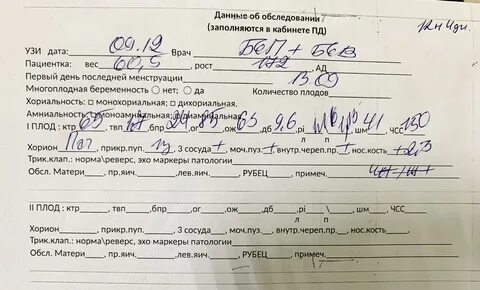 Данные об обследовании
(заполняются в кабинете ПД) 12н 4дн.
УЗИ дата: 09.12 Врач БСП + БСВ
Пациентка: вес 60,5, рост 172, АД
Первый день последней менструации 13 09
Многоплодная беременность □ нет; □ да Количество плодов
Хориальность: □ монохориальная; □ дихориальная.
Амниальность □ моноамниальная; □ диамниальная
I ПЛОД : ктр 65, твп 1,7, бпр 24, ог 85, ож 63, дб 9,6, pi, мм 41, ЧСС 150
Хорион, прикр.пуп., 3 сосуда +, моч.пуз. +, внутр.череп.пр. +, нос.кость +2,3
Трик.клап.: норма\реверс, эхо маркеры патологии
Обсл. Матери, пр.яич., лев.яич., РУБЕЦ, примеч.
II ПЛОД : ктр, твп, бпр, ог, ож, дб, pi, мм, ЧСС
Хорион, прикр.пуп., 3 сосуда, моч.пуз., внутр.череп.пр., нос.кость
Трик.клап.: норма\реверс, эхо маркеры патологии
Обсл. Матери, пр.яич., лев.яич., РУБЕЦ, примеч.